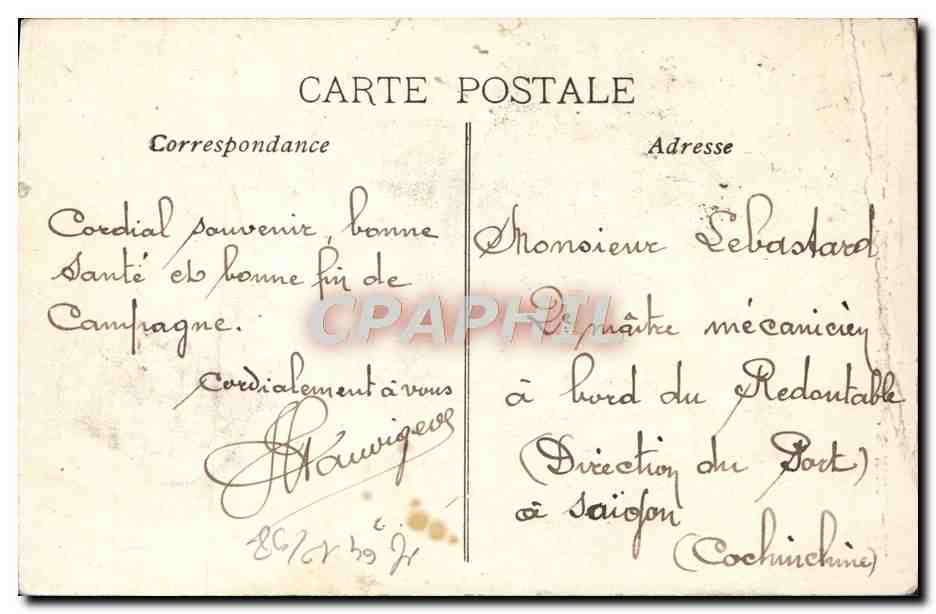 CARTE POSTALE
Correspondance
Cordial souvenir, bonne
Santé et bonne fin de
Campagne.
Cordialement à vous
Adresse
Monsieur Lebastard
2e maître mécanicien
à bord du Redoutable
(Direction du Port)
à Saïgon
(Cochinchine)
CPAPHIL